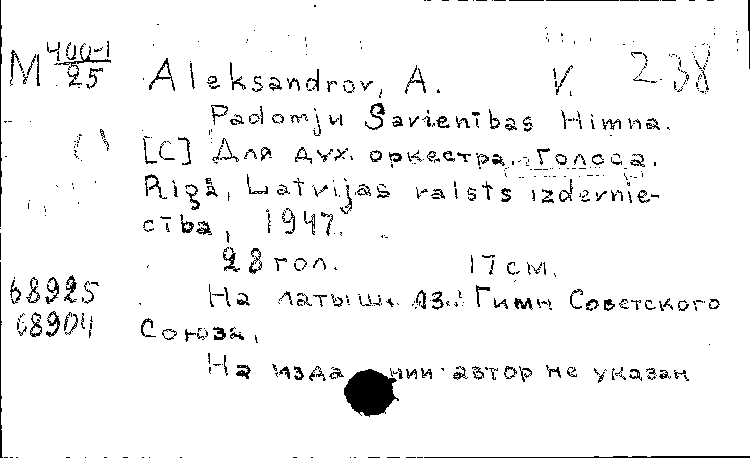 М 400-1/25 Aleksandrov, A. V. 238
Padomju Savienības Himna.
[С] Для дух. оркестра. Голоса.
Rīgā, Latvijas valsts izdevnie-
cība, 1947.
28 гол. 17 см.
68925 На латыш. яз.: Гимн Советского
68904 Союза.
На издании автор не указан